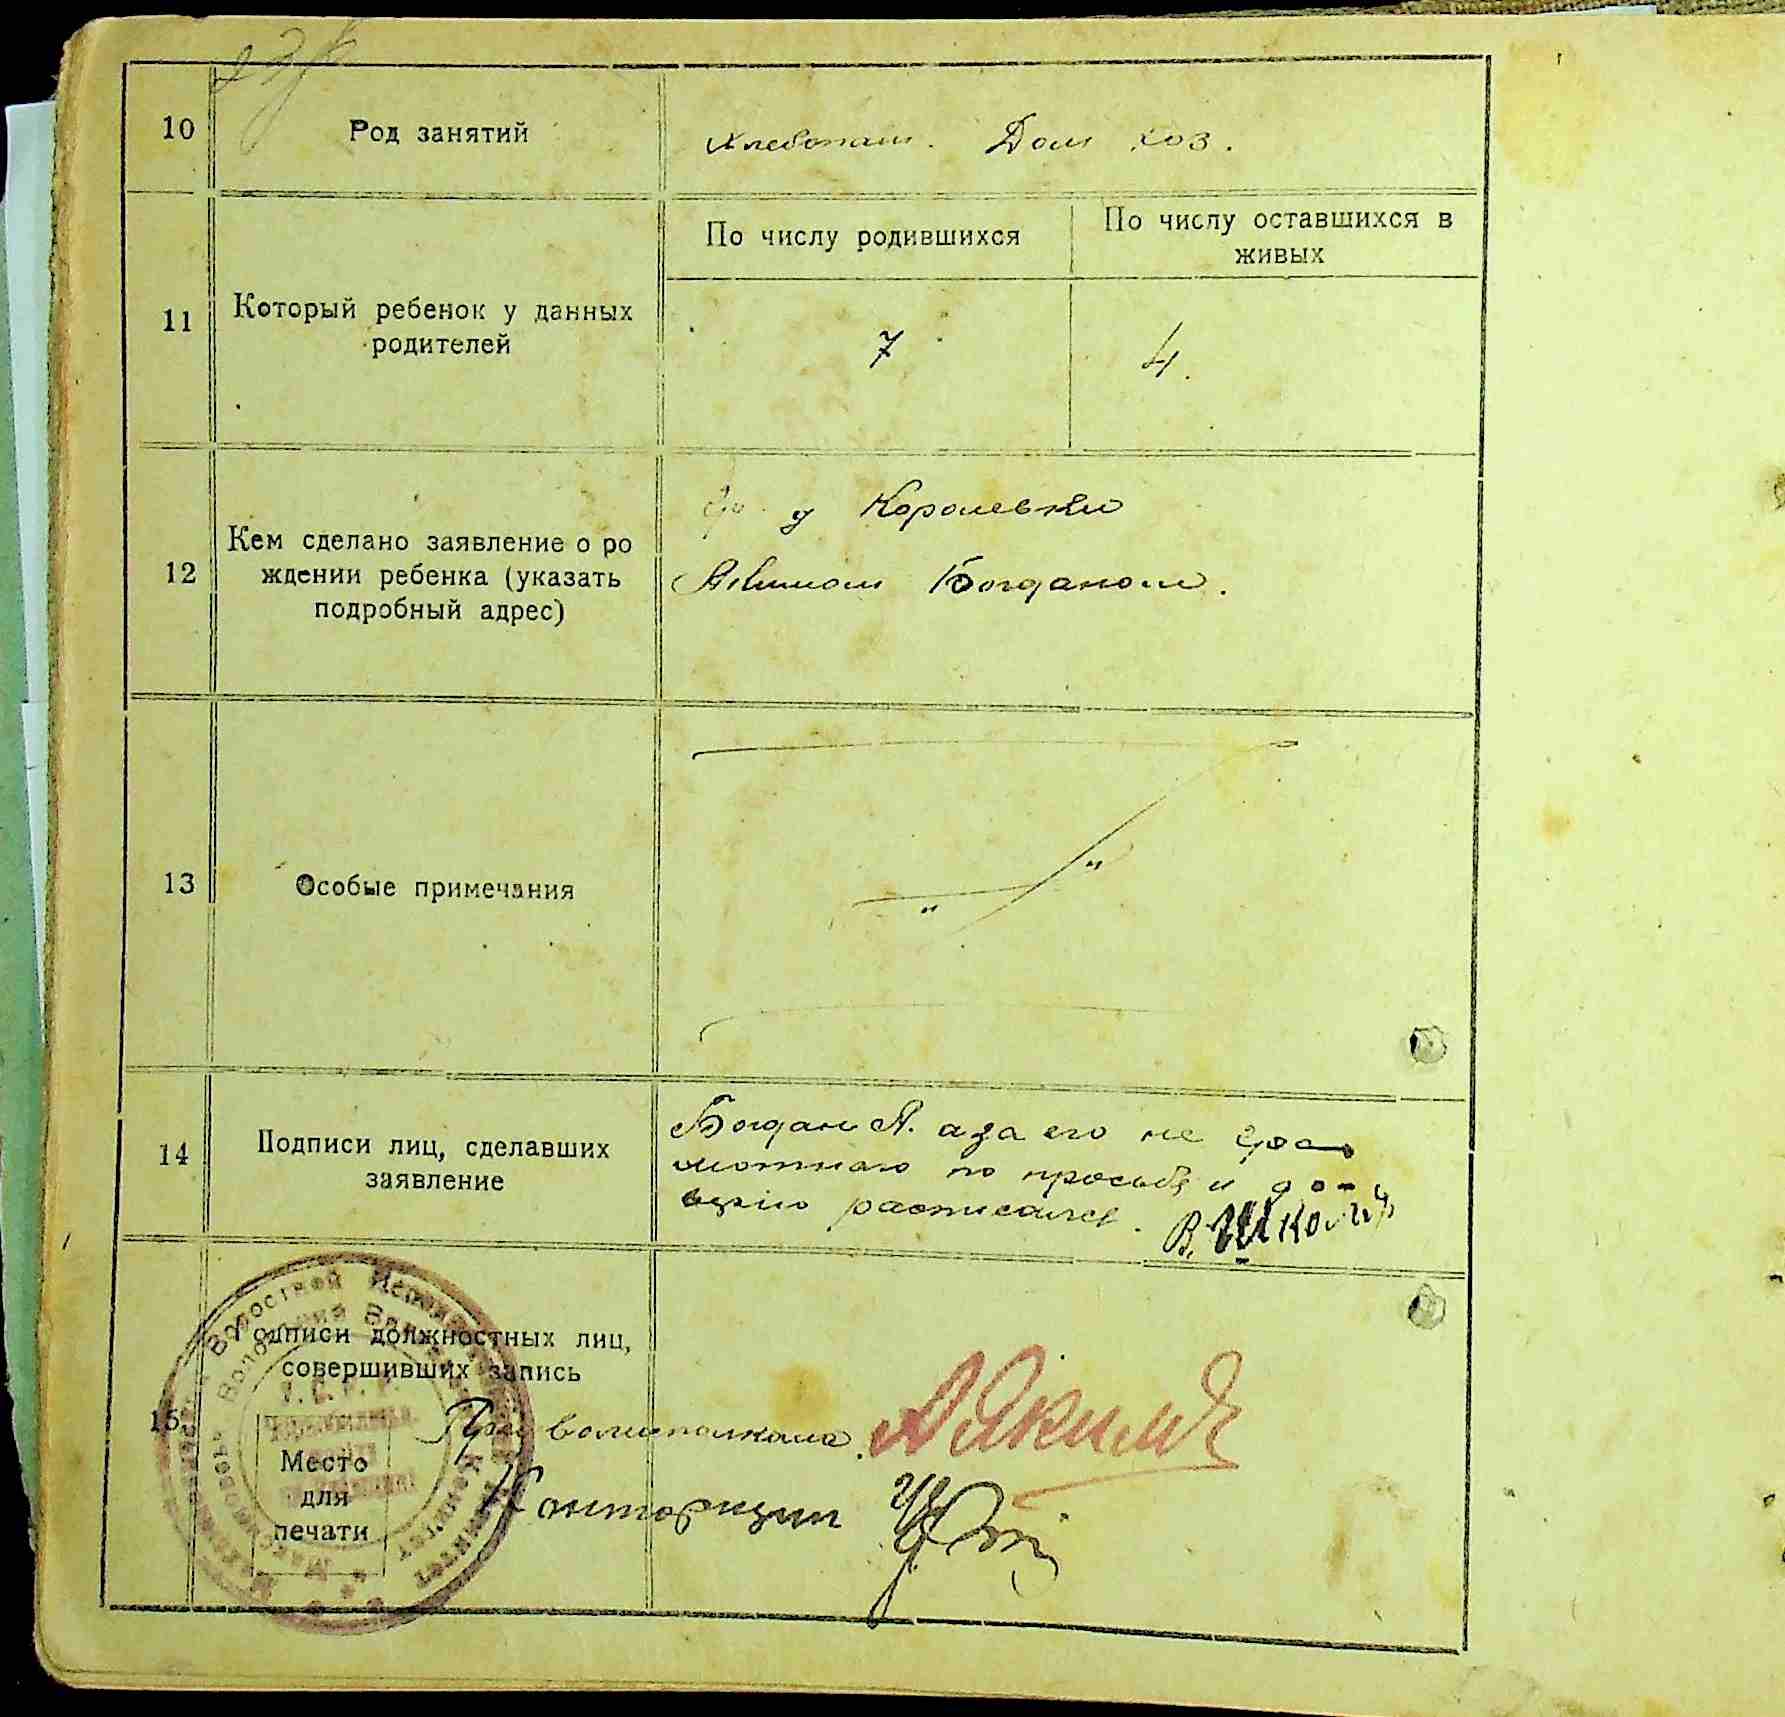 10
Род занятий
Хлебопаш. Дом хоз.
11
Который ребенок у данных
родителей
По числу родившихся
По числу оставшихся в
живых
7
4.
12
Кем сделано заявление о ро
ждении ребенка (указать
подробный адрес)
гр. у Королевки
Акимом Богданом.
13
Особые примечания
14
Подписи лиц, сделавших
заявление
Богдан А. а за его не гра
мотнаго по просьбе и до
верию расписался. В.
15
Подписи должностных лиц,
совершивших запись
Место
для
печати
Волостной Исполнительный Комитет
Конторщик